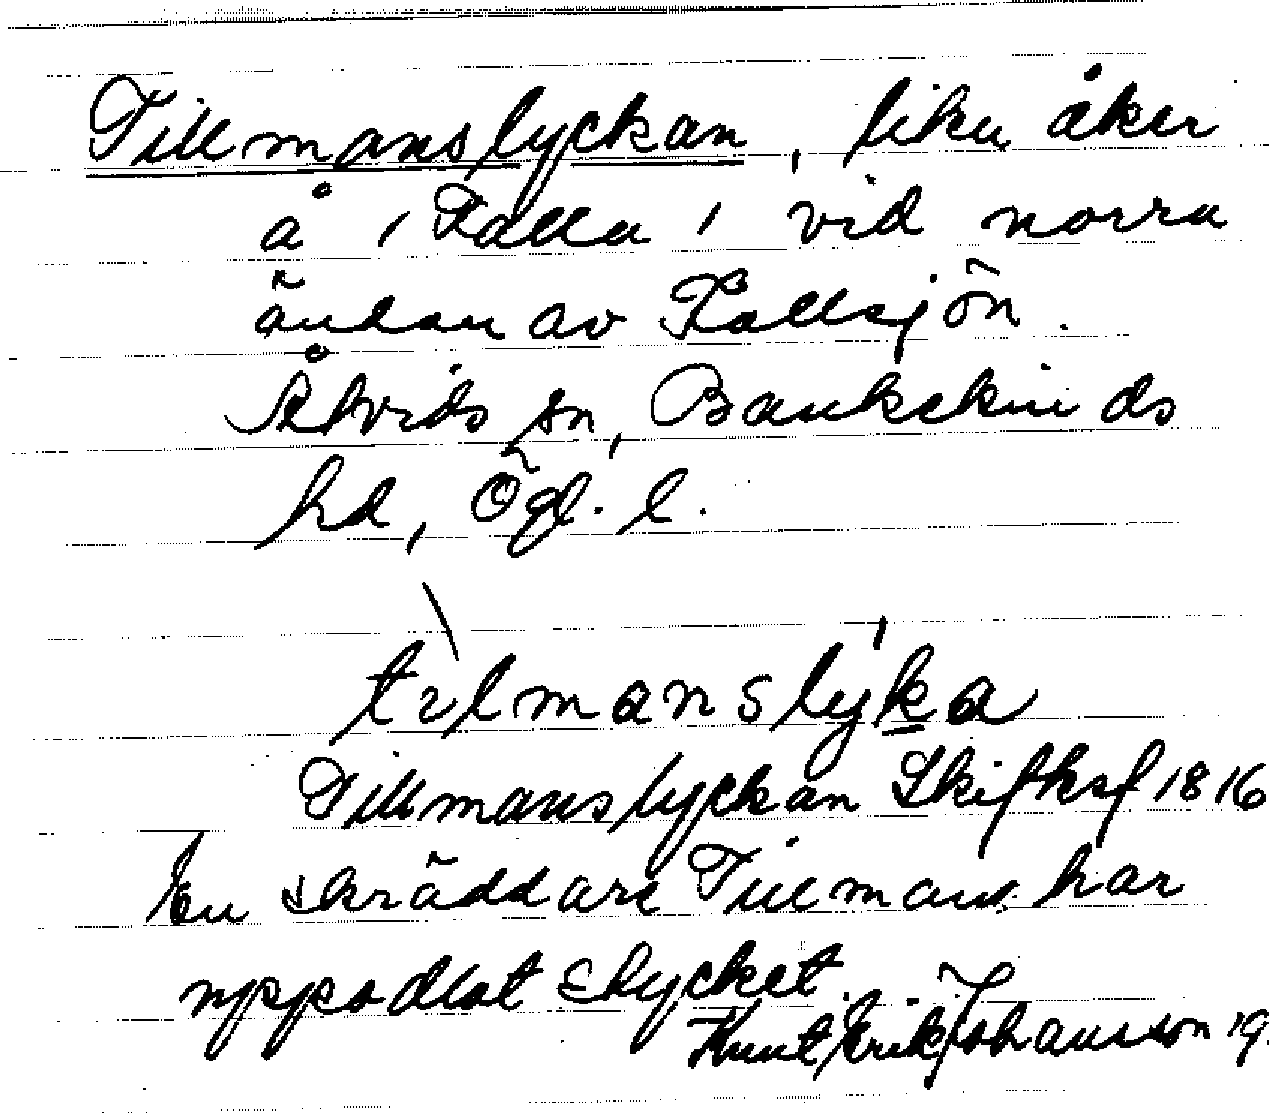 Tillmanslyckan, liten åker
å / Kalla / vid norra
ändan av Kallsjön.
Åtvids sn, Bankekinds
hd, Ögl. l.
tılmanslyka
Tillmanslyckan Skifksf 1816
En skräddare Tillman har
uppodlat stycket.
Knut Erik Johansson 19